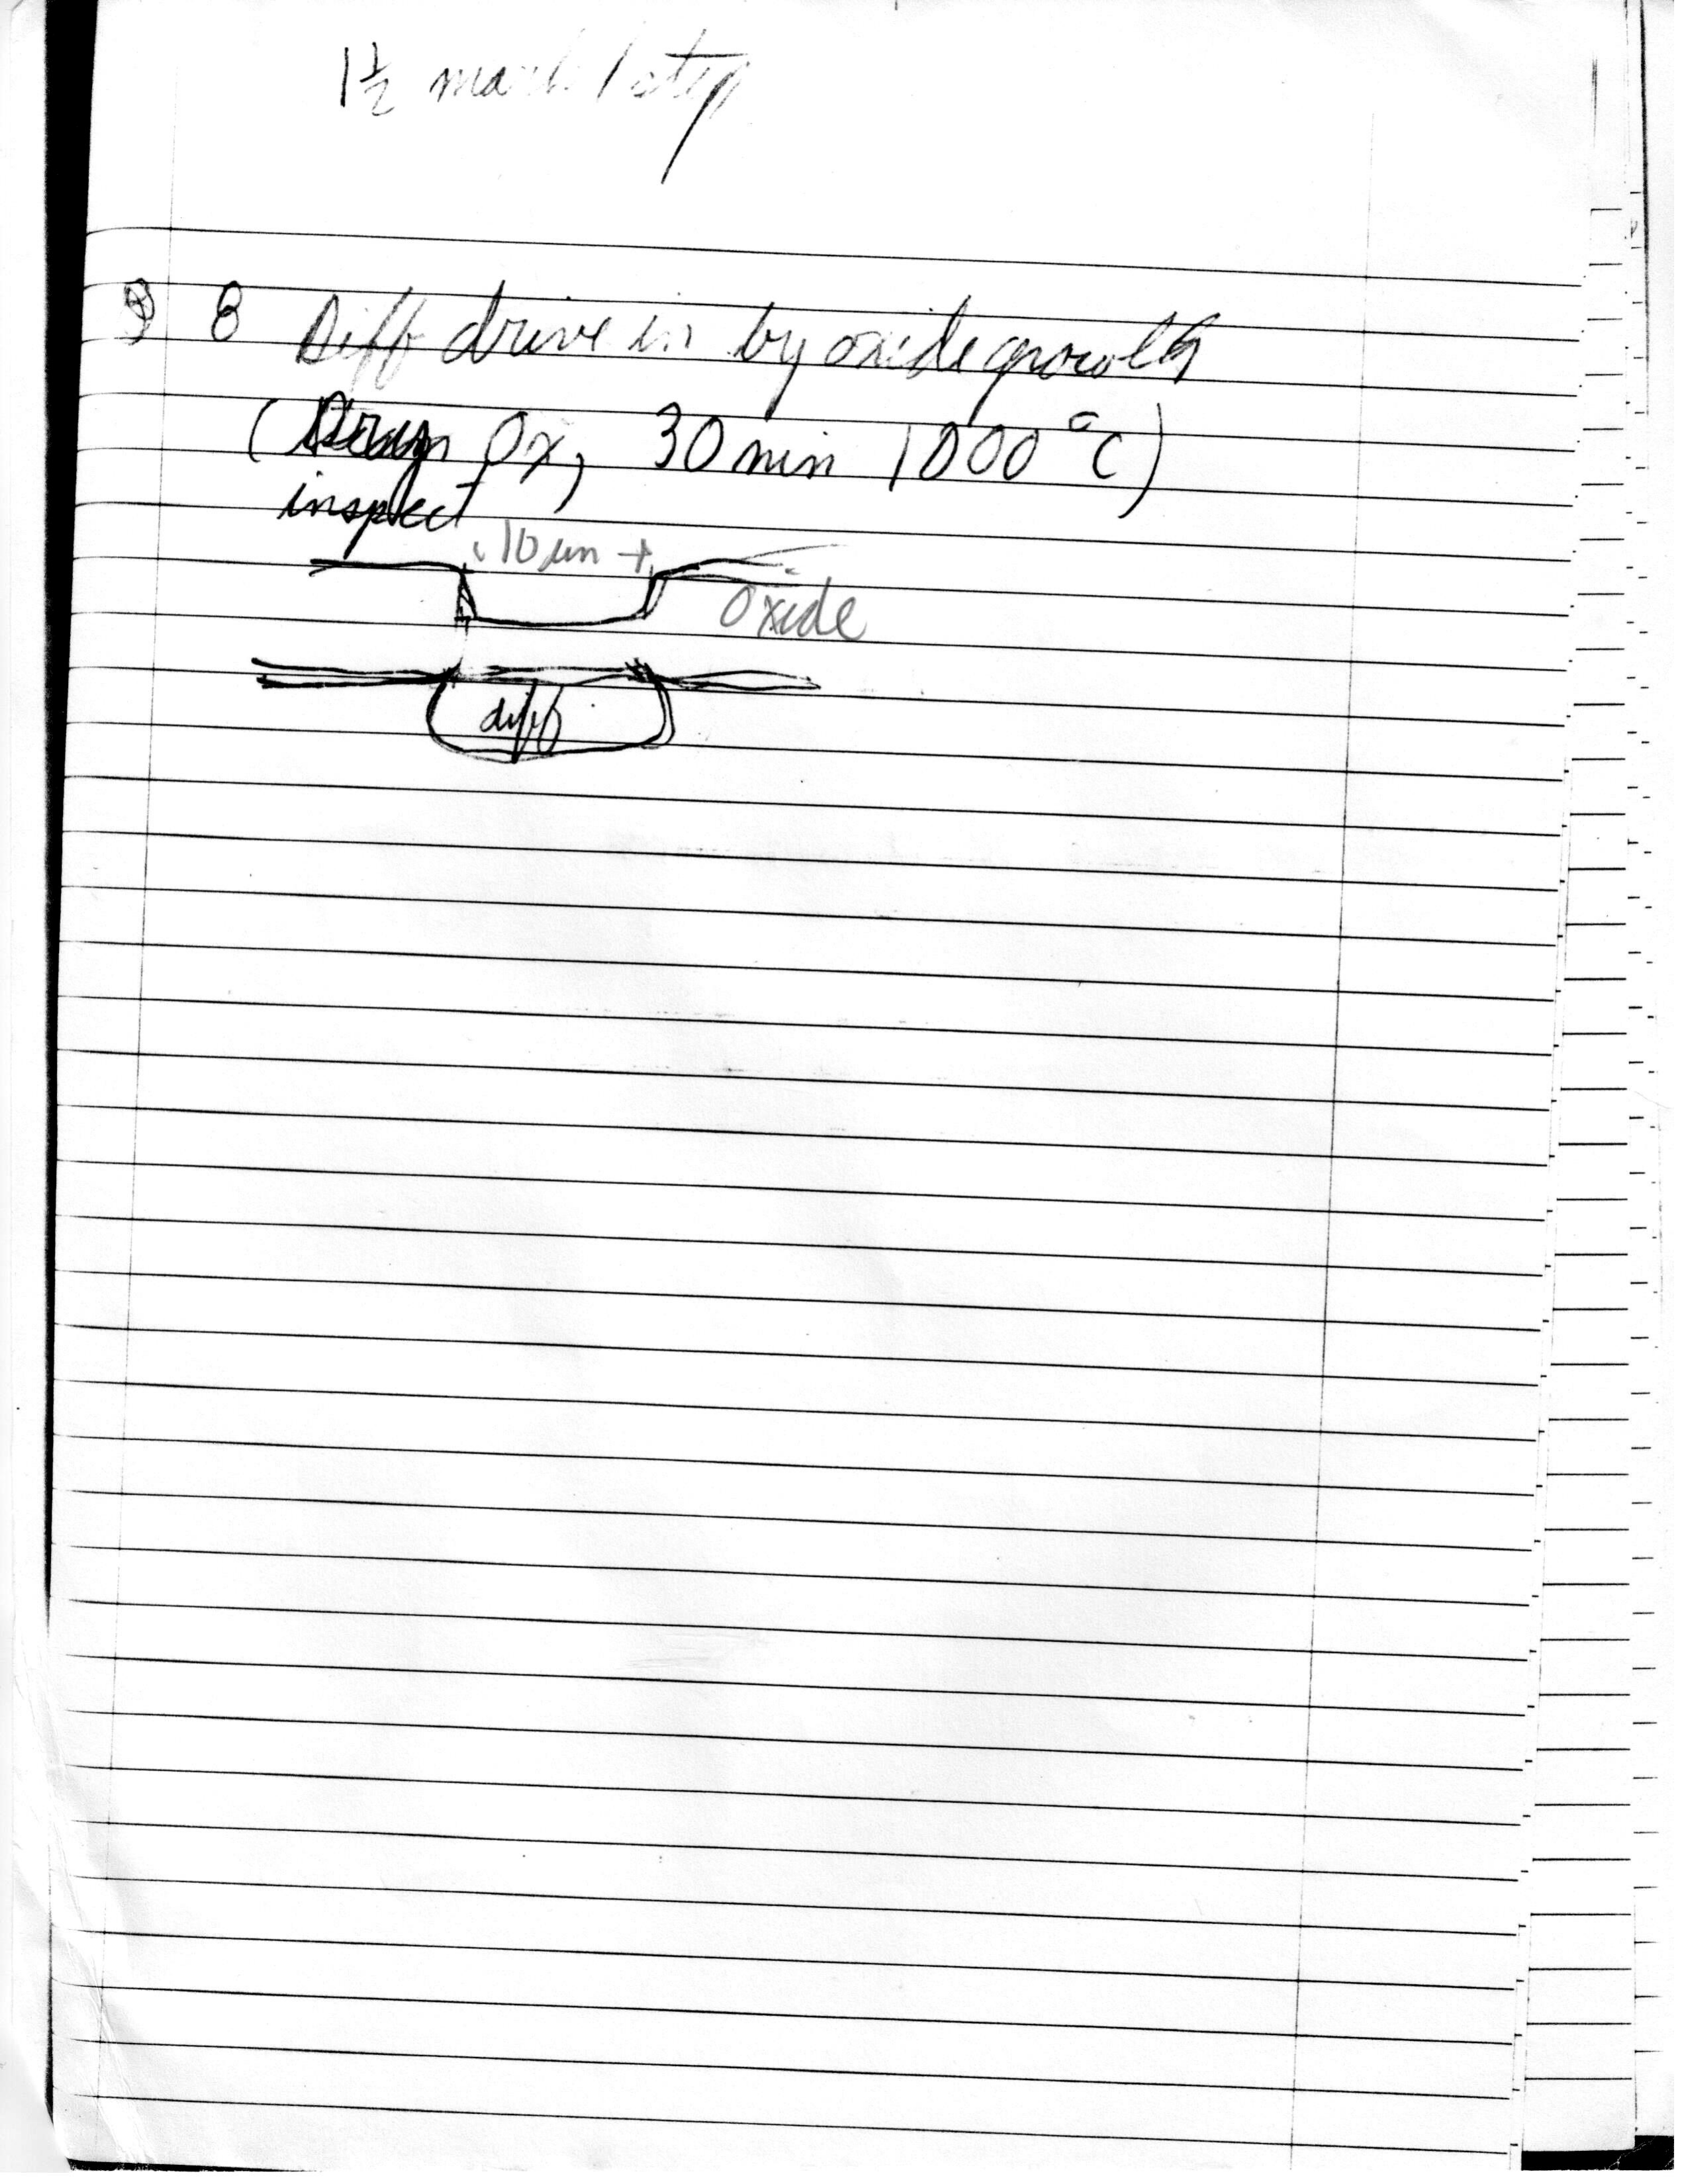 1½ mask / step
8 Diff drive in by oxide growth
( Ox, 30 min 1000°C)
inspect
10 um
Oxide
diff